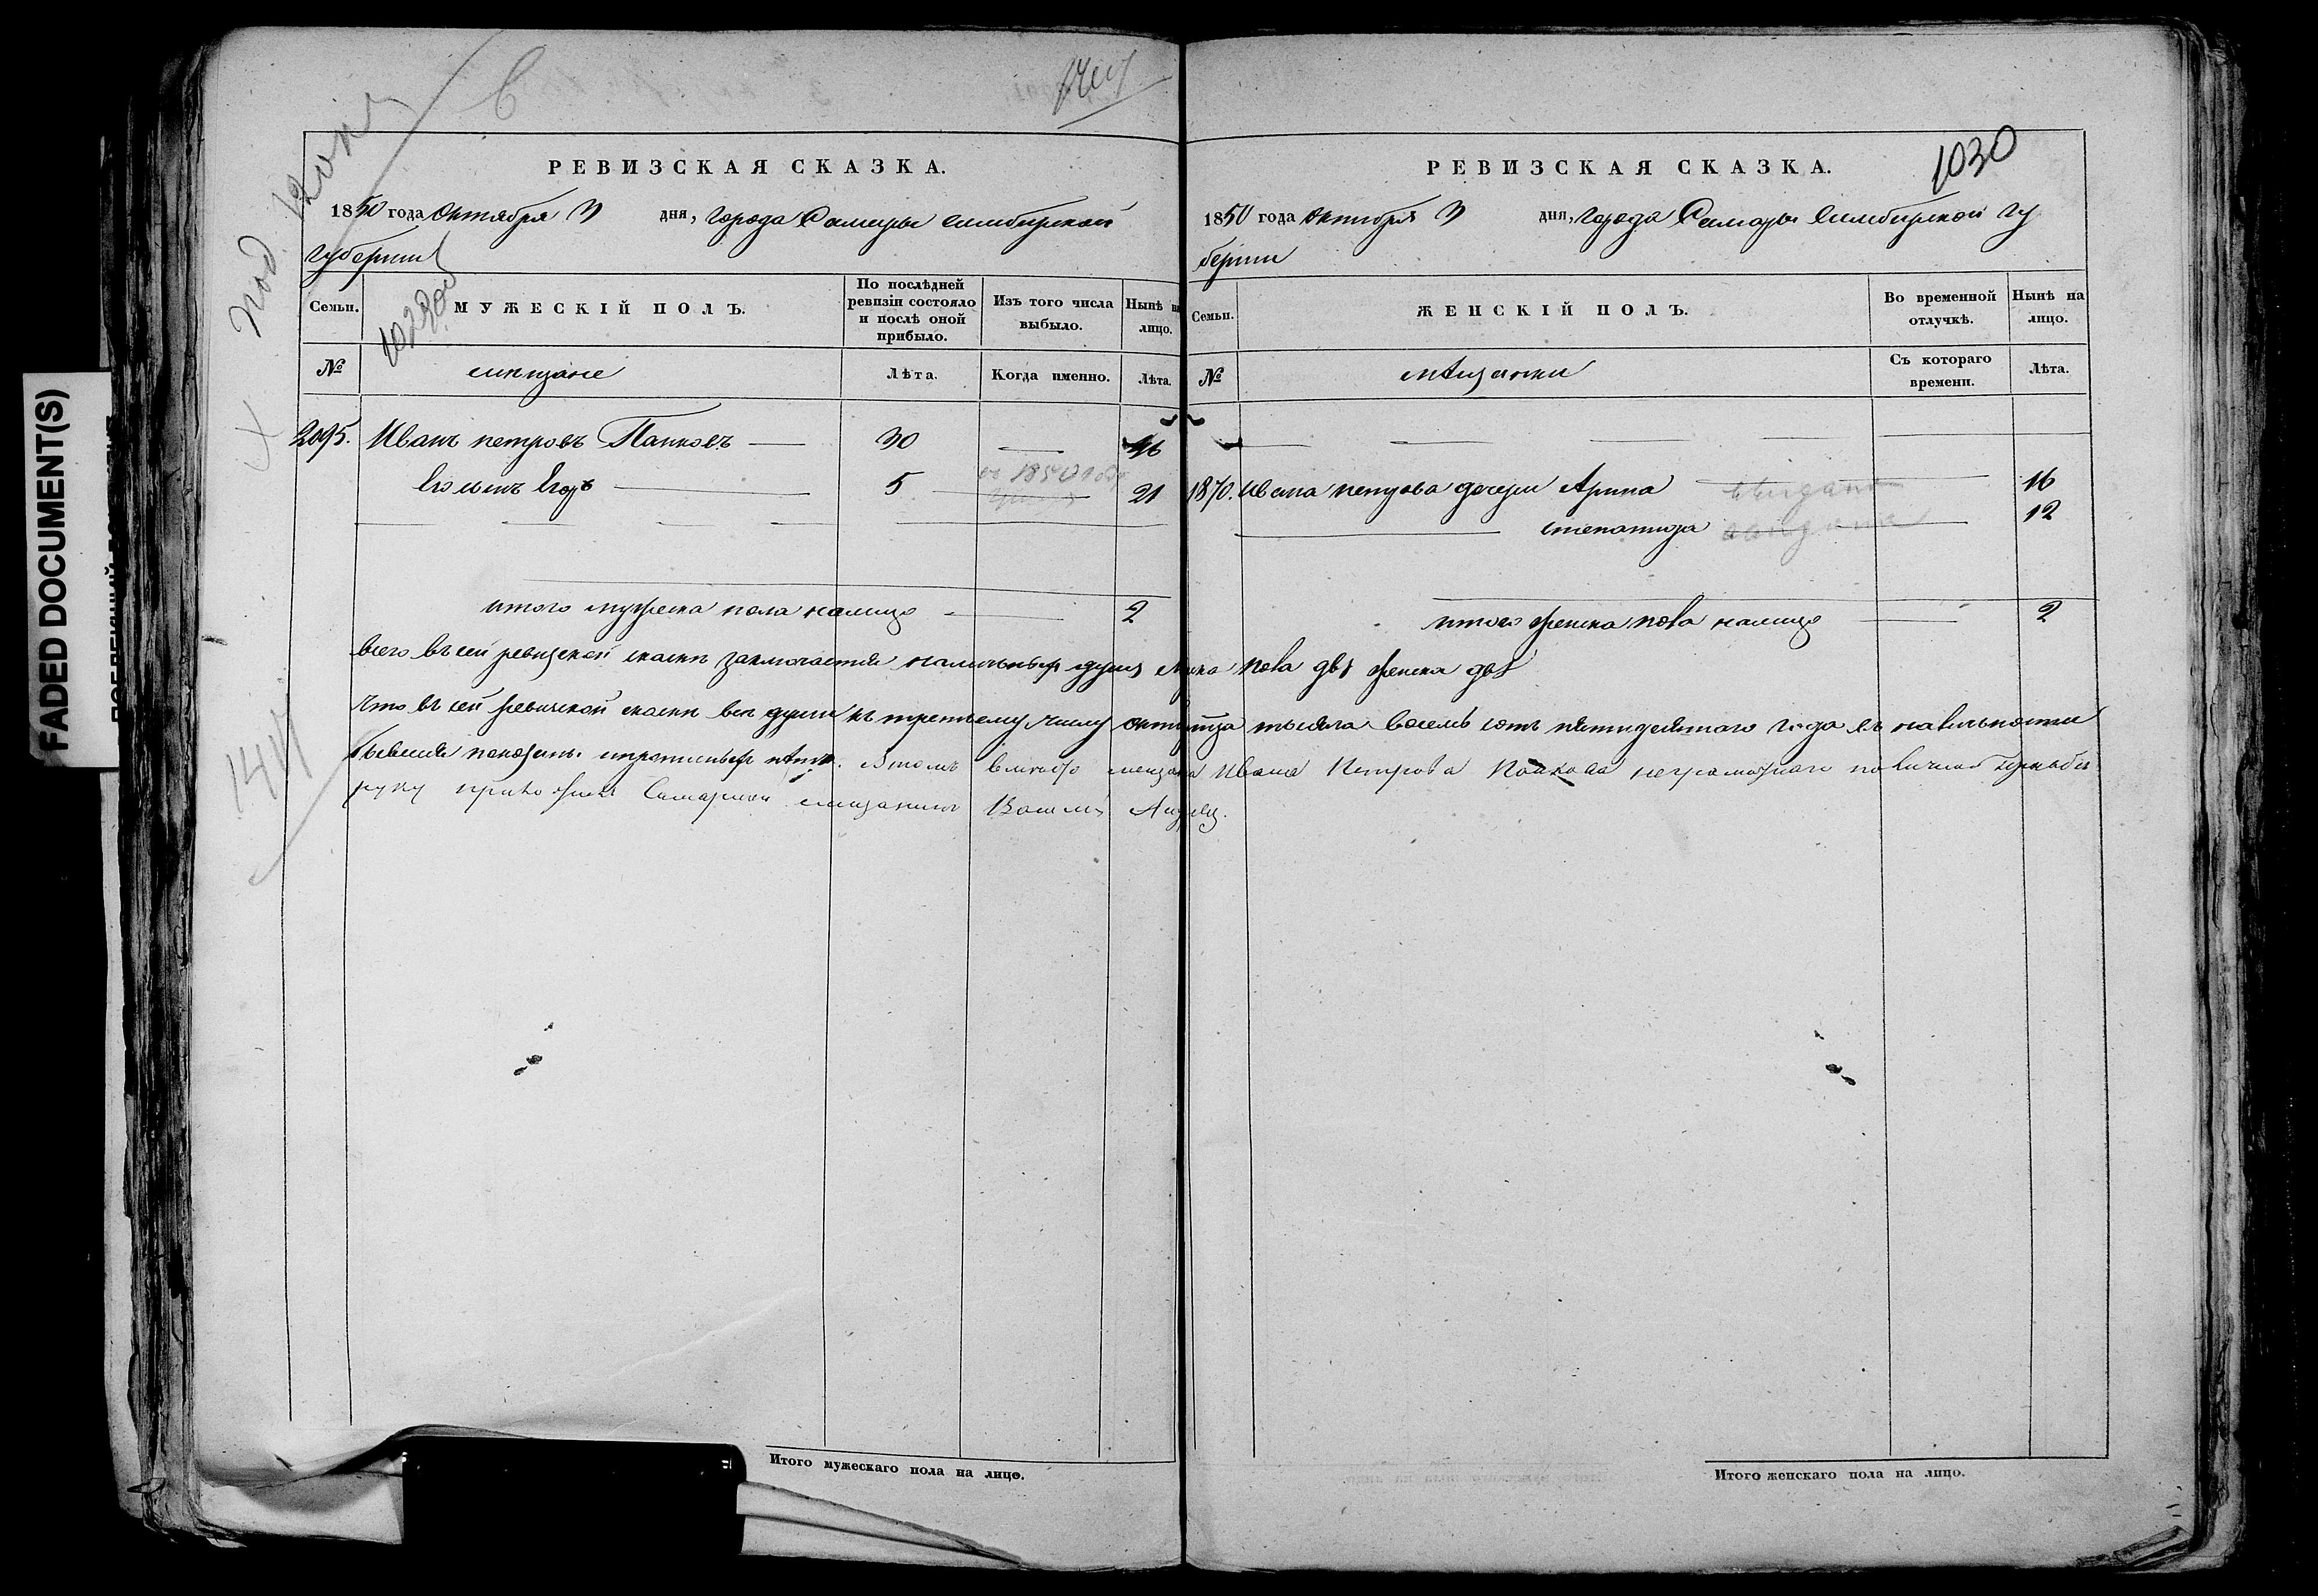 FADED DOCUMENT(S)
1030
РЕВИЗСКАЯ СКАЗКА.
1850 года Октября 3 дня, города Самары Симбирской
губернии
Семьи.
МУЖЕСКІЙ ПОЛЪ.
По послѣдней
ревизіи состояло
и послѣ оной
прибыло.
Изъ того числа
выбыло.
Нынѣ на
лицо.
№
мещане
Лѣта.
Когда именно.
Лѣта.
2095. Иванъ петровъ Папковъ 30 46
Его сынъ Егоръ 5 21
итого мужеска пола налицо 2
РЕВИЗСКАЯ СКАЗКА.
1850 года октября 3 дня, города Самары Симбирской гу
бернии
Семьи.
ЖЕНСКІЙ ПОЛЪ.
Во временной
отлучкѣ.
Нынѣ на
лицо.
№
мѣщанки
Съ котораго
времени.
Лѣта.
1870. Ивана петрова дочери Арина 16
степанида 12
итого женска пола налицо 2
всего въ сей ревизской сказки заключается наличныхъ душъ муска пола двѣ женска двѣ
Что въ сей ревизской сказки все души къ третьему числу октября тысяча восемь сотъ пятидесятаго года въ наличности
бывшия показаны и пропи­сныхъ нѣтъ. Въ томъ вместо мещана Ивана Петрова Папкова неграмотнаго по личной прозьбы
руку приложилъ Самарской мещанинъ
1411
Итого мужескаго пола на лицо.
Итого женскаго пола на лицо.